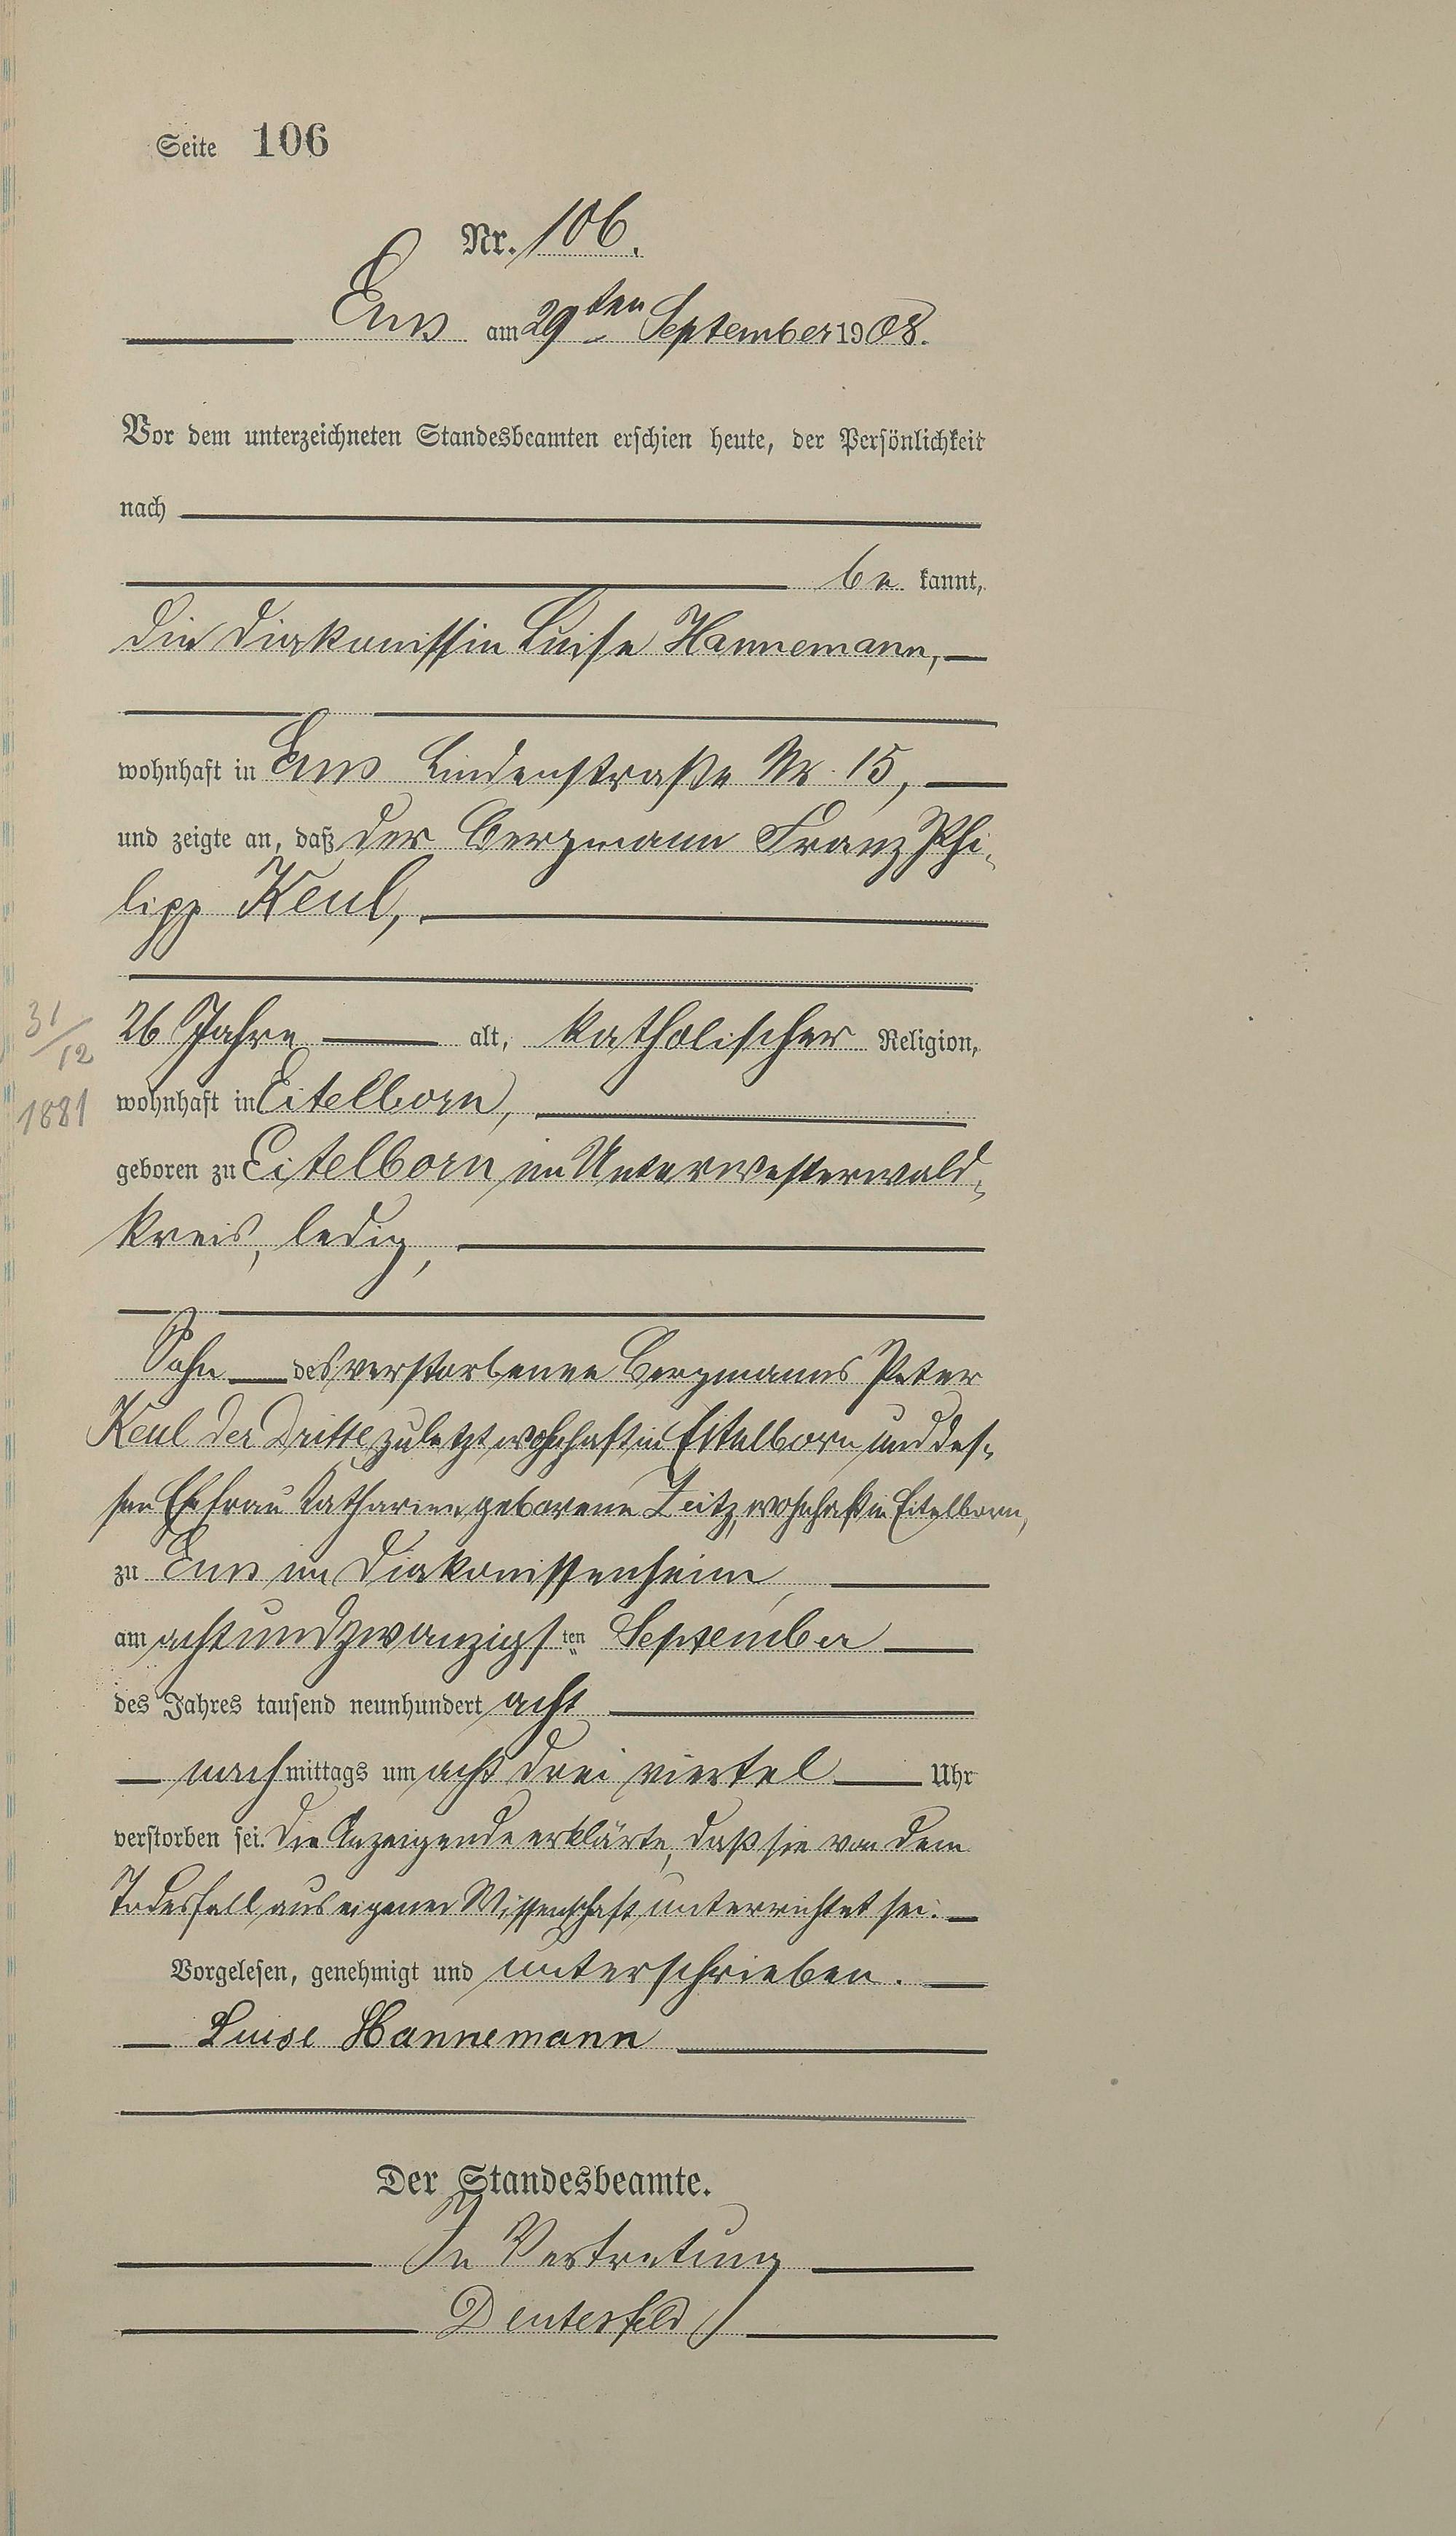 Seite 106
Nr. 106.
Ems am 29ten September 1908.
Vor dem unterzeichneten Standesbeamten erschien heute, der Persönlichkeit
nach
be kannt,
die Diakonissin Luise Hannemann,
wohnhaft in Ems Lindenstraße Nr. 15,
und zeigte an, daß der Bergmann Franz Phi-
lipp Keul,
31/12 26 Jahre alt, katholischer Religion,
1881 wohnhaft in Eitelborn,
geboren zu Eitelborn im Unterwesterwald-
kreis, ledig,
Sohn des verstorbenen Bergmanns Peter
Keul der Dritte, zuletzt wohnhaft in Eitelborn und des-
sen Ehefrau Katharina geborene wohnhaft in Eitelborn,
zu Ems im Diakonissenheim,
am achtundzwanzigsten September
des Jahres tausend neunhundert acht
nachmittags um acht drei viertel Uhr
verstorben sei. Die Anzeigende erklärte, daß sie von dem
Todesfall aus eigener Wissenschaft unterrichtet sei.
Vorgelesen, genehmigt und unterschrieben.
Luise Hannemann
Der Standesbeamte.
In Vertretung